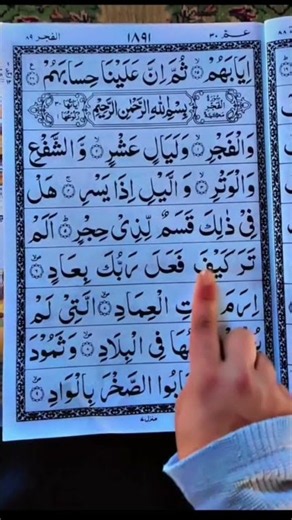 الفجر ٨٩ ١٨٩١ عم ٣٠
اِيَابَهُمْ ۙ ثُمَّ اِنَّ عَلَيْنَا حِسَابَهُمْ
بِسْمِ اللّٰهِ الرَّحْمٰنِ الرَّحِيْمِ
وَالْفَجْرِ ۙ وَلَيَالٍ عَشْرٍ ۙ وَّ الشَّفْعِ
وَالْوَتْرِ ۙ وَ الَّيْلِ اِذَا يَسْرِ ۚ هَلْ
فِيْ ذٰلِكَ قَسَمٌ لِّذِيْ حِجْرٍ ؕ اَلَمْ
تَرَ كَيْفَ فَعَلَ رَبُّكَ بِعَادٍ
اِرَمَ الْعِمَادِ الَّتِيْ لَمْ
فِي الْبِلَادِ وَثَمُوْدَ
الصَّخْرَ بِالْوَادِ